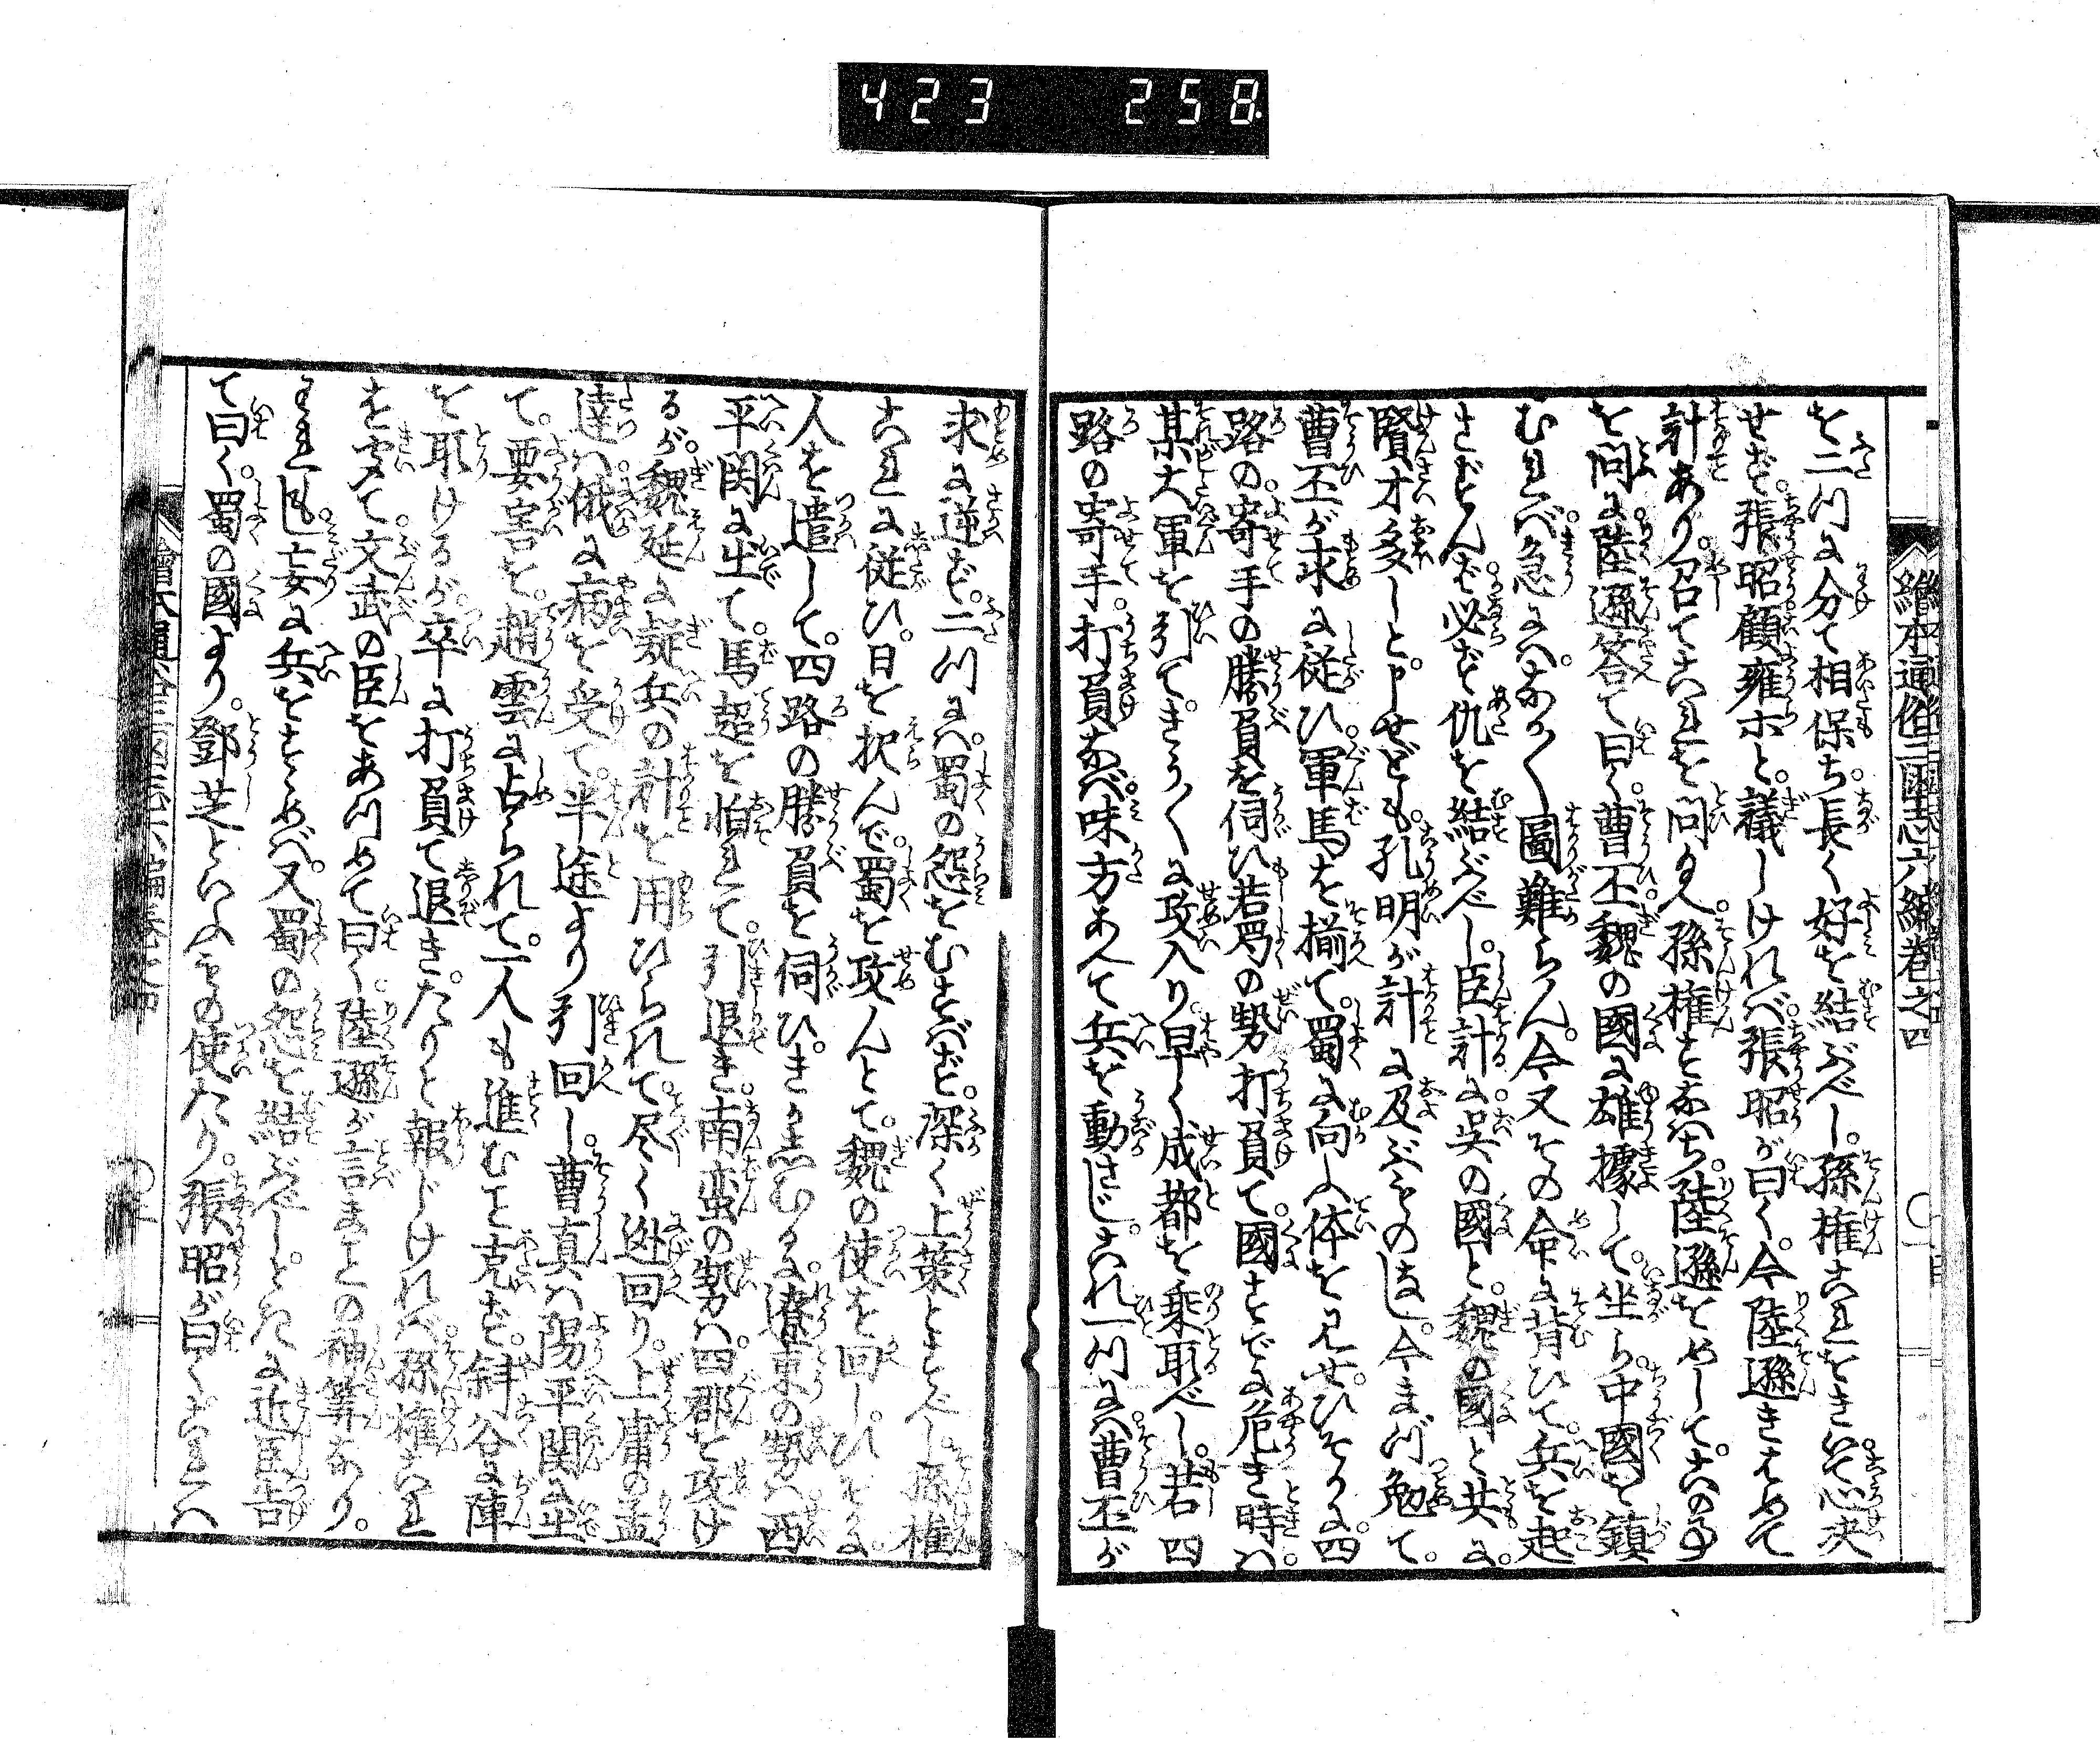 423 258
繪本通俗三國志六編巻之四
を二つに分て相保ち。長く好を結ぶべし。孫権これをきいて。心决
せず。張昭顧雍ホと。議しけれバ。張昭が曰く。今陸遜きはめて
計あり。召てこれを問たまへ。孫権すなハち。陸遜をめして。此の事
を問に。陸遜答て曰く。曹丕。魏の國に雄據して。坐ら中國を鎮
むれバ。急にハ。なか〱圖難らん。今又その命に背ひて。兵を起
さずんバ。必ず仇を結ぶべし。臣計るに。呉の國と。魏の國と共に。
賢才多しと申せども。孔明が計に及ぶものなし。今まづ勉て。
曹丕が求に従ひ。軍馬を揃て。蜀に向ふ体を見せ。ひそかに。四
路の。寄手の勝負を伺ひ。若蜀の勢打負て。國すでに危き時ハ。
某大軍を引て。きう〱に攻入り。早く成都を乗取べし。若四
路の寄手。打負なバ。味方あへて兵を動さじ。これ一つにハ。曹丕が
求に逆ず。二つにハ。蜀の怨をむすバず。深く上策とすべし。孫権
これに従ひ。日を択んで。蜀を攻んとて。魏の使を回し。ひそかに。
人を遣して。四路の勝負を伺ひ。きかしむるに。遼東の勢ハ。西
平関に出て。馬超を怕れて。引退き。南蛮の勢ハ。四郡を攻け
るが。魏延に疑兵の計を用ひられて。尽く迯回り。上庸の孟
達ハ。俄に病を受て。半途より引回し。曹真ハ陽平関に出
て。要害を。趙雲に占られて。一人も進むこと克ず。斜谷に陣
を取けるが。卒に打負て退きたりと報じけれバ。孫権これ
を聞て。文武の臣をあつめて曰く。陸遜が言まことの神筭あり。
われもし妄に兵をすゝめバ。又蜀の怨を結ぶべしと。時に近臣告
て曰く。蜀の國より。鄧芝といふもの使たり。張昭が曰く。これハ